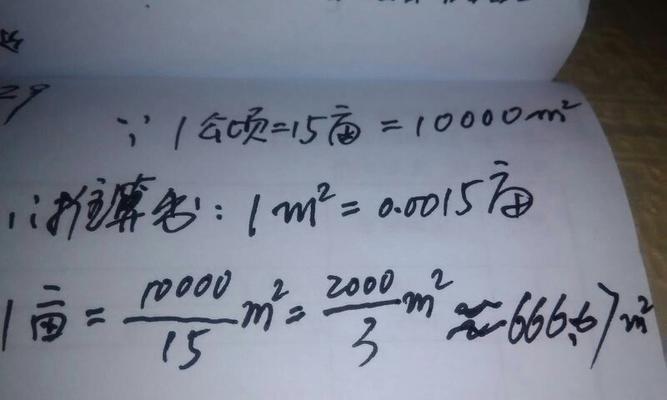 29
∵ 1公顷=15亩=10000m²
∴推算出:1m²=0.0015亩
1亩=10000/15m²=2000/3m²≈666.67m²